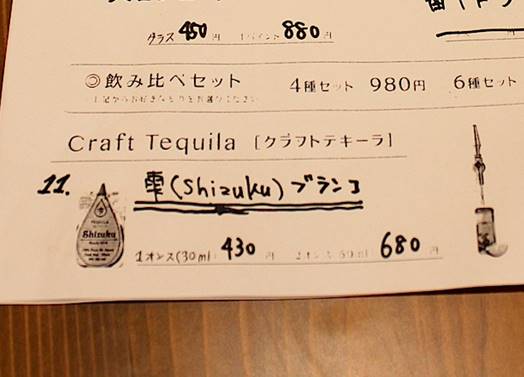 グラス 450円 1パイント 880円
◎飲み比べセット 4種セット 980円 6種セット
Craft Tequila [クラフトテキーラ]
11. 雫(Shizuku)ブランコ
Shizuku
1オンス(30ml) 430 2オンス 60ml 680円